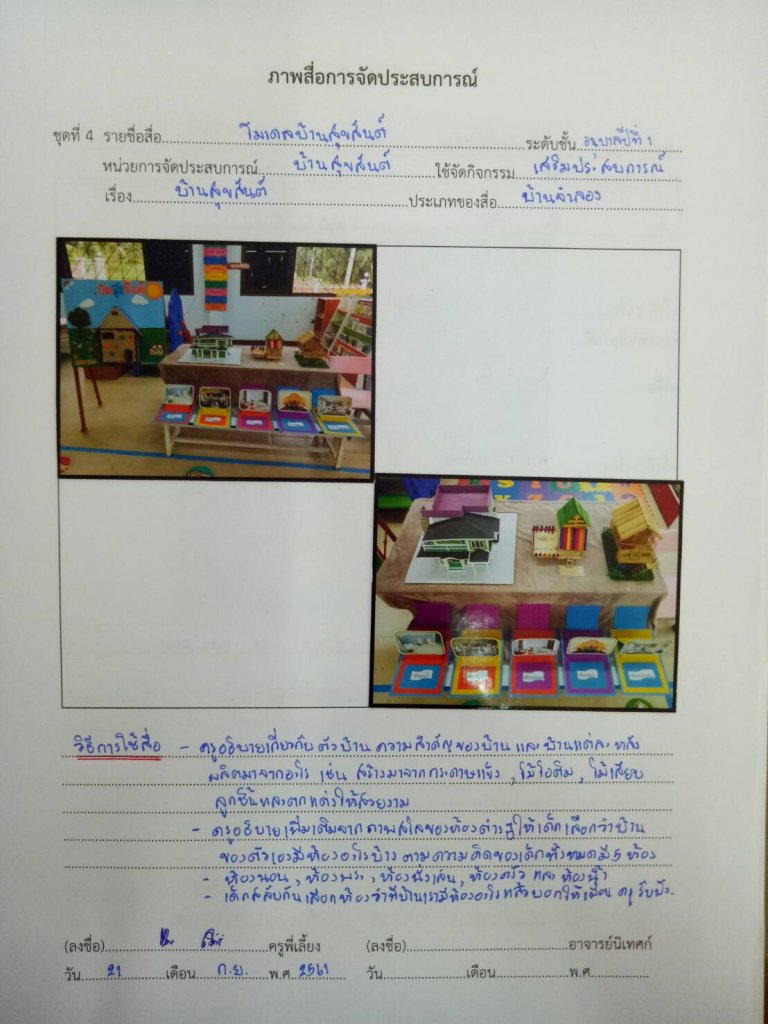 ภาพสื่อการจัดประสบการณ์
ชุดที่ 4 รายชื่อสื่อ โมเดลบ้านสุขสันต์ ระดับชั้น อนุบาลปีที่ 1
หน่วยการจัดประสบการณ์ บ้านสุขสันต์ ใช้จัดกิจกรรม เสริมประสบการณ์
เรื่อง บ้านสุขสันต์ ประเภทของสื่อ บ้านจำลอง
วิธีการใช้สื่อ - ครูอธิบายเกี่ยวกับตัวบ้าน ความสำคัญของบ้าน และบ้านแต่ละหลัง
ผลิตมาจากอะไร เช่น สร้างมาจากกระดาษแข็ง , ไม้ไอติม , ไม้เสียบ
ลูกชิ้นและตกแต่งให้สวยงาม
- ครูอธิบายเพิ่มเติมจากภาพสไลของห้องต่างๆให้เด็กเลือกว่าบ้าน
ของตัวเองมีห้องอะไรบ้าง ตามความคิดของเด็กทั้งหมดมี 5 ห้อง
- ห้องนอน , ห้องพระ , ห้องนั่งเล่น , ห้องครัว และ ห้องน้ำ
- เด็กสลับกันเลือกห้องว่าที่บ้านเรามีห้องอะไรแล้วบอกให้เพื่อน ครู รับฟัง.
(ลงชื่อ) ครูพี่เลี้ยง (ลงชื่อ) อาจารย์นิเทศก์
วัน 21 เดือน ก.ย. พ.ศ. 2561 วัน เดือน พ.ศ.